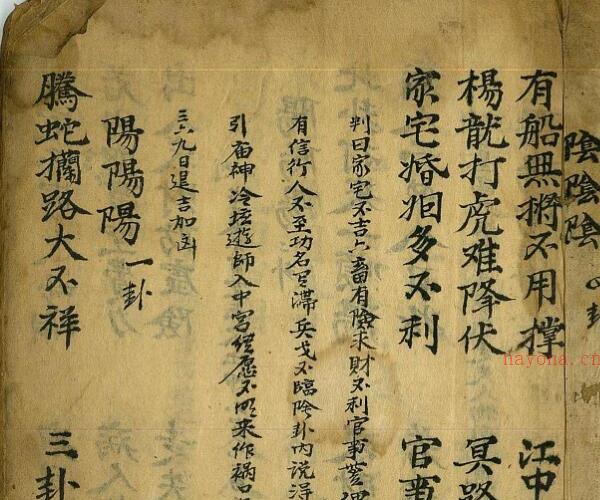 陰陰陰 卦
有船無撐不用撑 江中
楊龍打虎难降伏 冥路
家宅婚姻多不利 官事
判曰家宅不吉六畜有險求財不利官事
有信行人不至功名 滞兵戈不臨陰卦內說得
引庙神冷坛遊師入中宮 愿不明来作祸口
三六九日退吉加凶
陽陽陽一卦
騰蛇攔路大不祥 三卦
nayona.cn